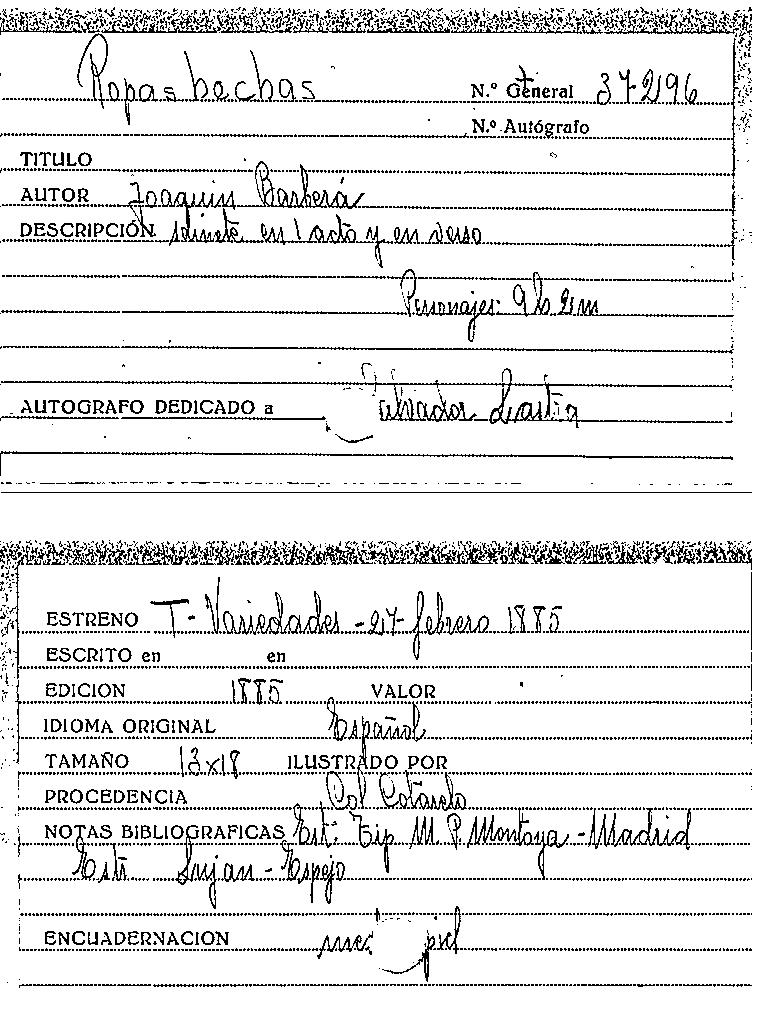 Ropas hechas
N.º General 37296
N.º Autógrafo
TITULO
AUTOR Joaquin Barberá
DESCRIPCIÓN sainete en 1 acto y en verso
Personajes: 9 h 2 m
AUTOGRAFO DEDICADO a Salvador Lastra
ESTRENO T- Variedades - 27- febrero 1885
ESCRITO en en
EDICION 1885 VALOR
IDIOMA ORIGINAL Español
TAMAÑO 13x18 ILUSTRADO POR
PROCEDENCIA Col Cotarelo
NOTAS BIBLIOGRAFICAS Est: Tip M. P. Montoya - Madrid
Estr Lujan - Espejo
ENCUADERNACION piel